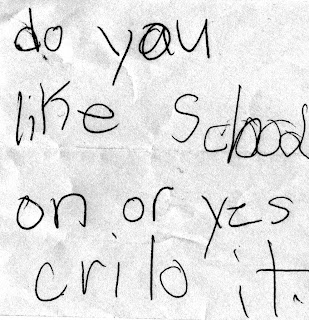 do you
like school
on or yes
crilo it.